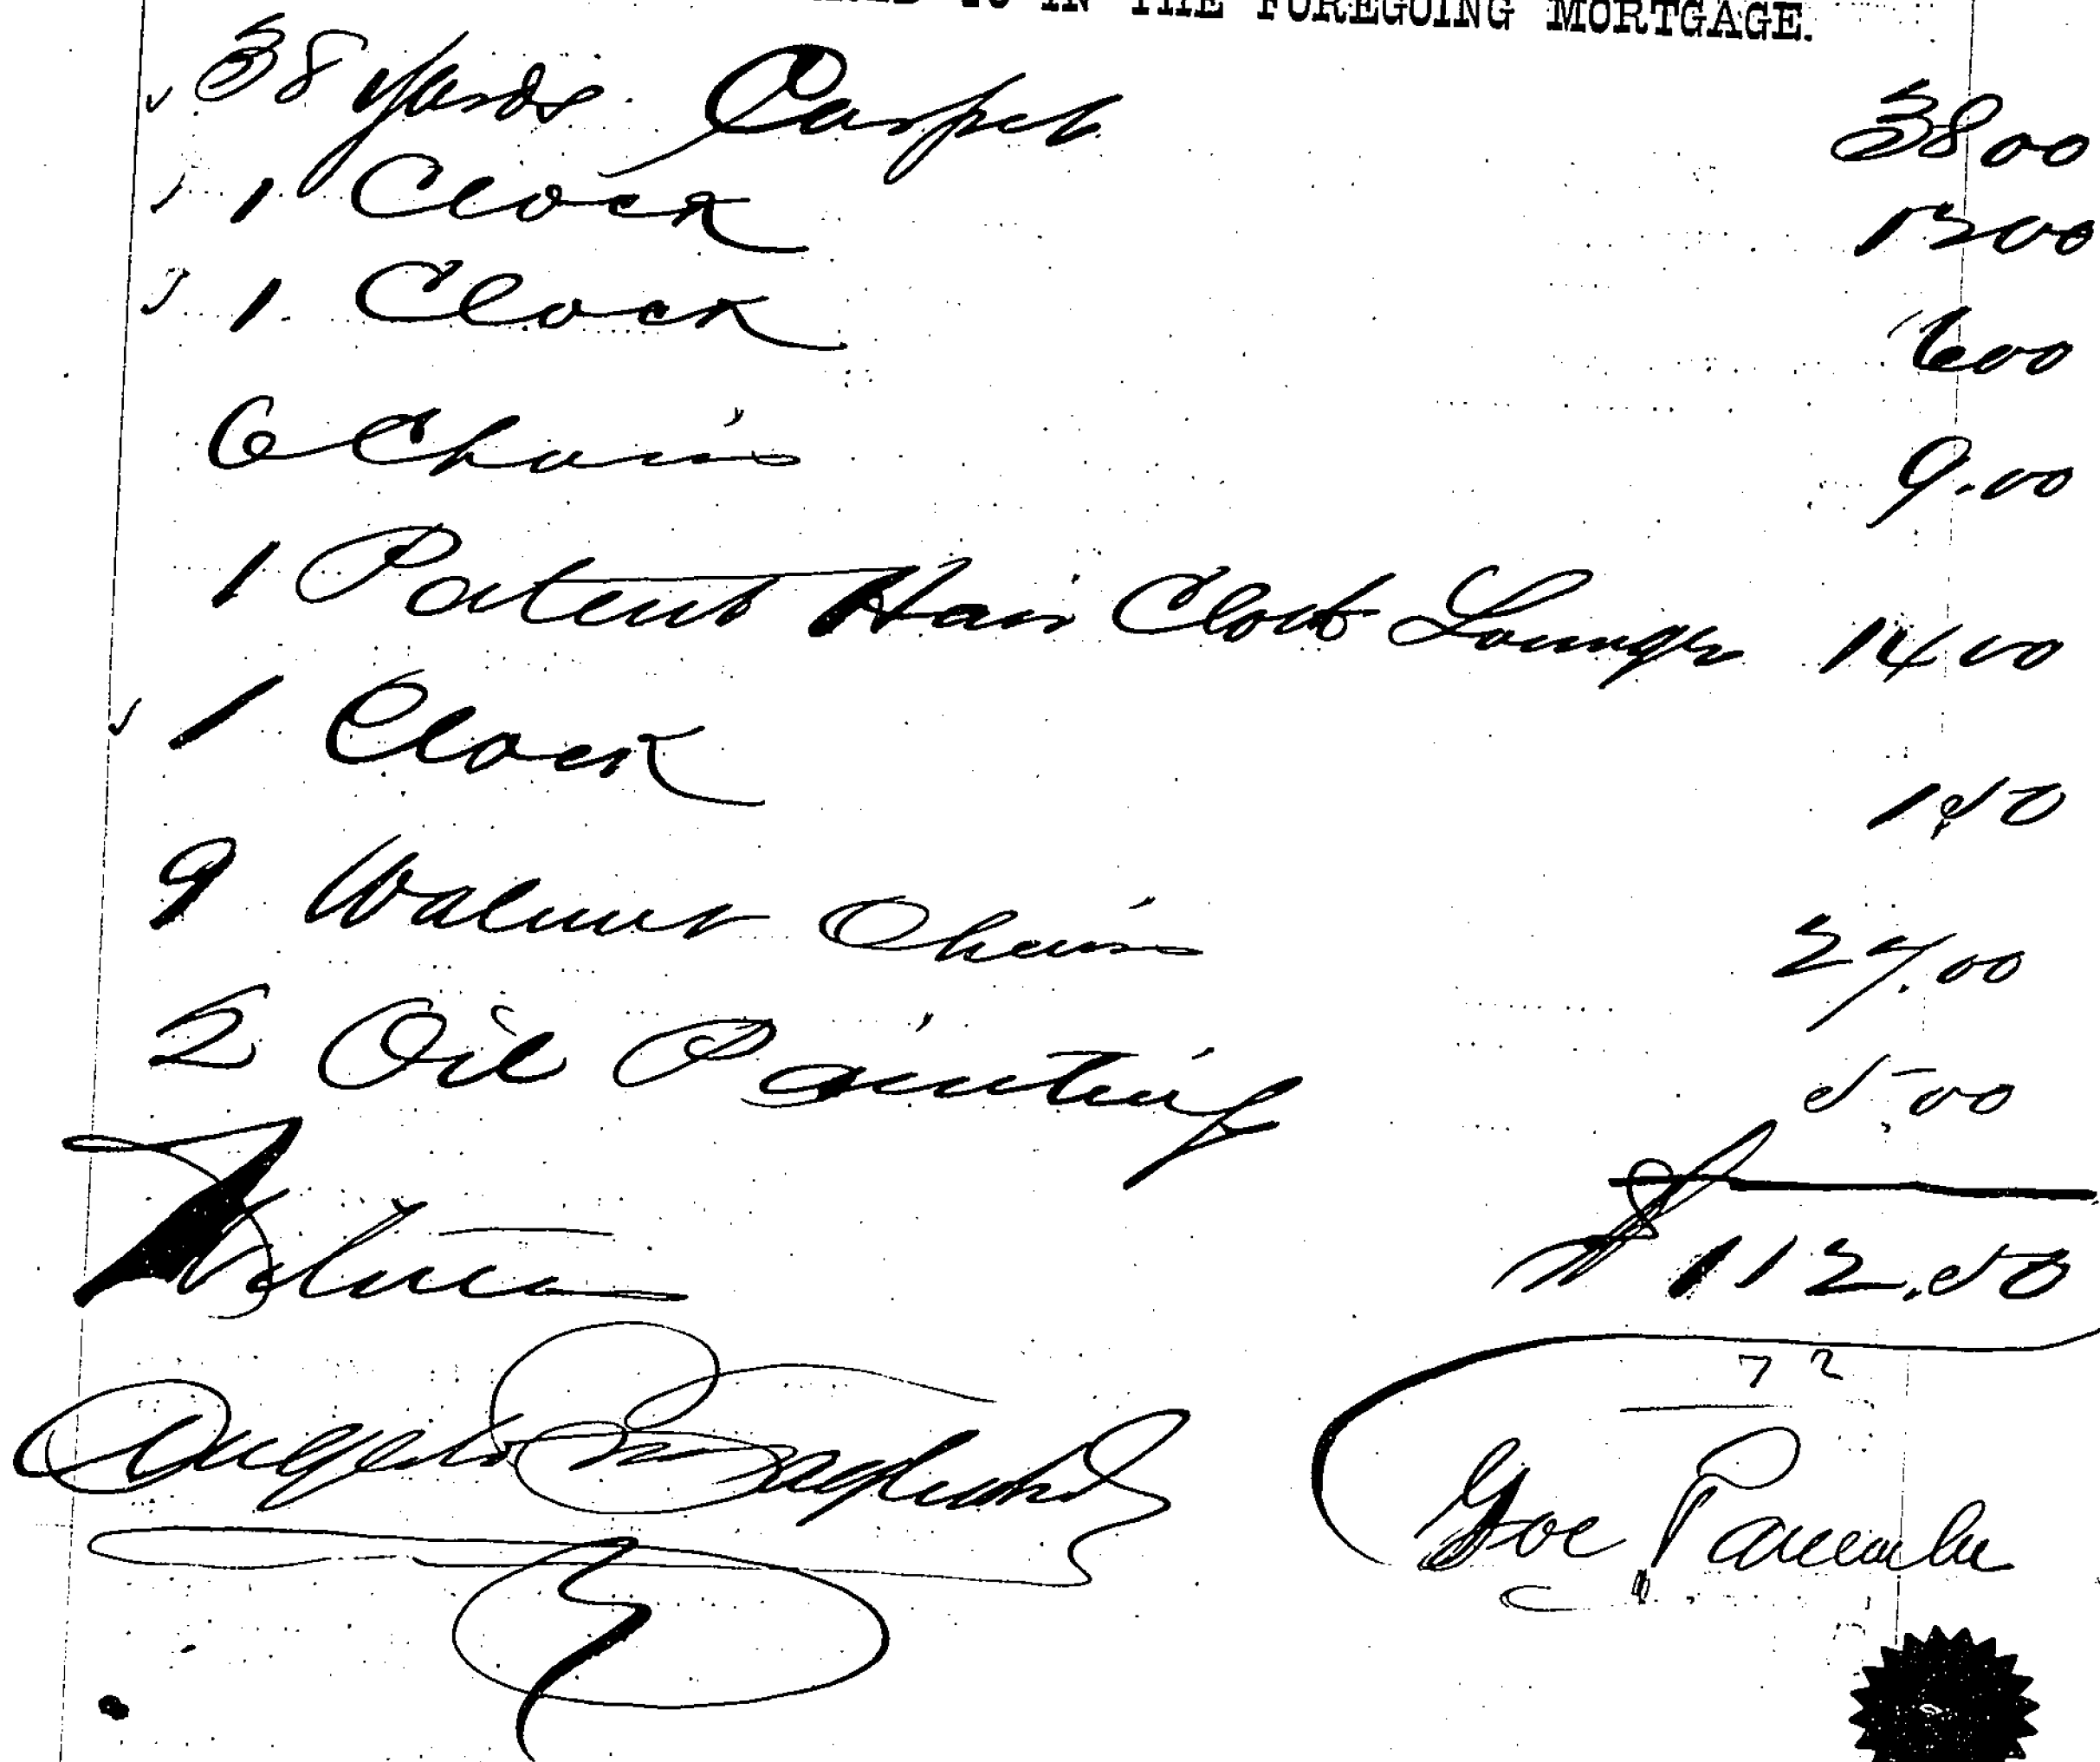 TO IN THE FOREGOING MORTGAGE.
38 Yards Carpet 38 00
1 Clock 12 00
1 Clock 6 00
6 Chairs 9.00
1 Patent Hair Cloth Lounge 14 00
1 Clock 1.50
9 Walnut Chairs 27.00
2 Oil Painting 5.00
Witness $112.50
72
Angelo
Joe